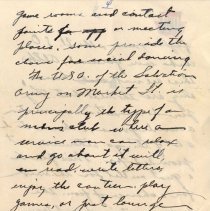 game rooms and contact
points for app or meeting
places, some provide the
place for social dancing
The U.S.O. of the Salvation
Army on Market St. is
principally the type of a
men's club where a
service man can relax
and go about it will
or read, write letters
enjoy the canteen, play
games, or just lounge